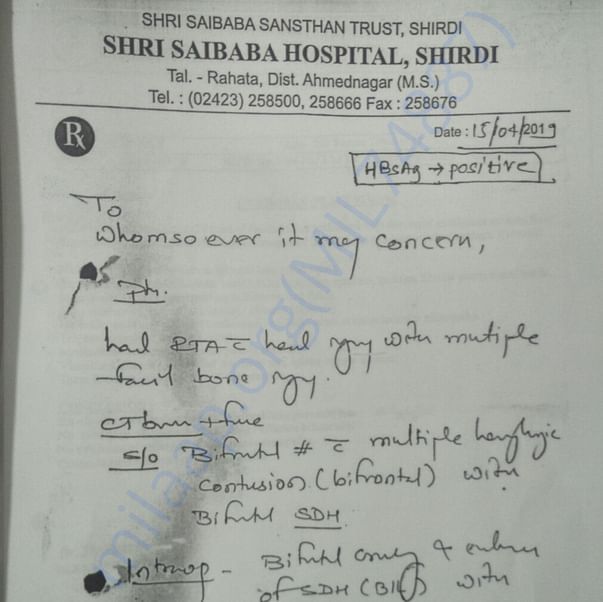 SHRI SAIBABA SANSTHAN TRUST, SHIRDI
SHRI SAIBABA HOSPITAL, SHIRDI
Tal. - Rahata, Dist. Ahmednagar (M.S.)
Tel. : (02423) 258500, 258666 Fax : 258676
Rx
Date : 15/04/2019
HBsAg → positive
To
whomsoever it may concern,
Pt.
had RTA c̄ head injury with multiple
facial bone injury.
CT brain + face
S/O Bifrontal # c̄ multiple hemorrhagic
contusion (bifrontal) with
Bifrontal SDH
Intraop - Bifrontal
of SDH (B/L) with
milaap.org(MIL74887)